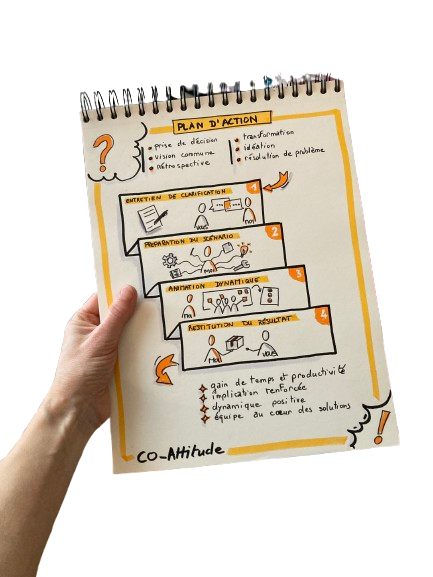 PLAN D'ACTION
?
• prise de décision
• vision commune
• rétrospective
• transformation
• idéation
• résolution de problème
ENTRETIEN DE CLARIFICATION 1
vous moi
PRÉPARATION DU SCÉNARIO 2
moi
ANIMATION DYNAMIQUE 3
moi
RESTITUTION DU RÉSULTAT 4
moi vous
gain de temps et productivité
implication renforcée
dynamique positive
équipe au cœur des solutions
!
CO-Attitude